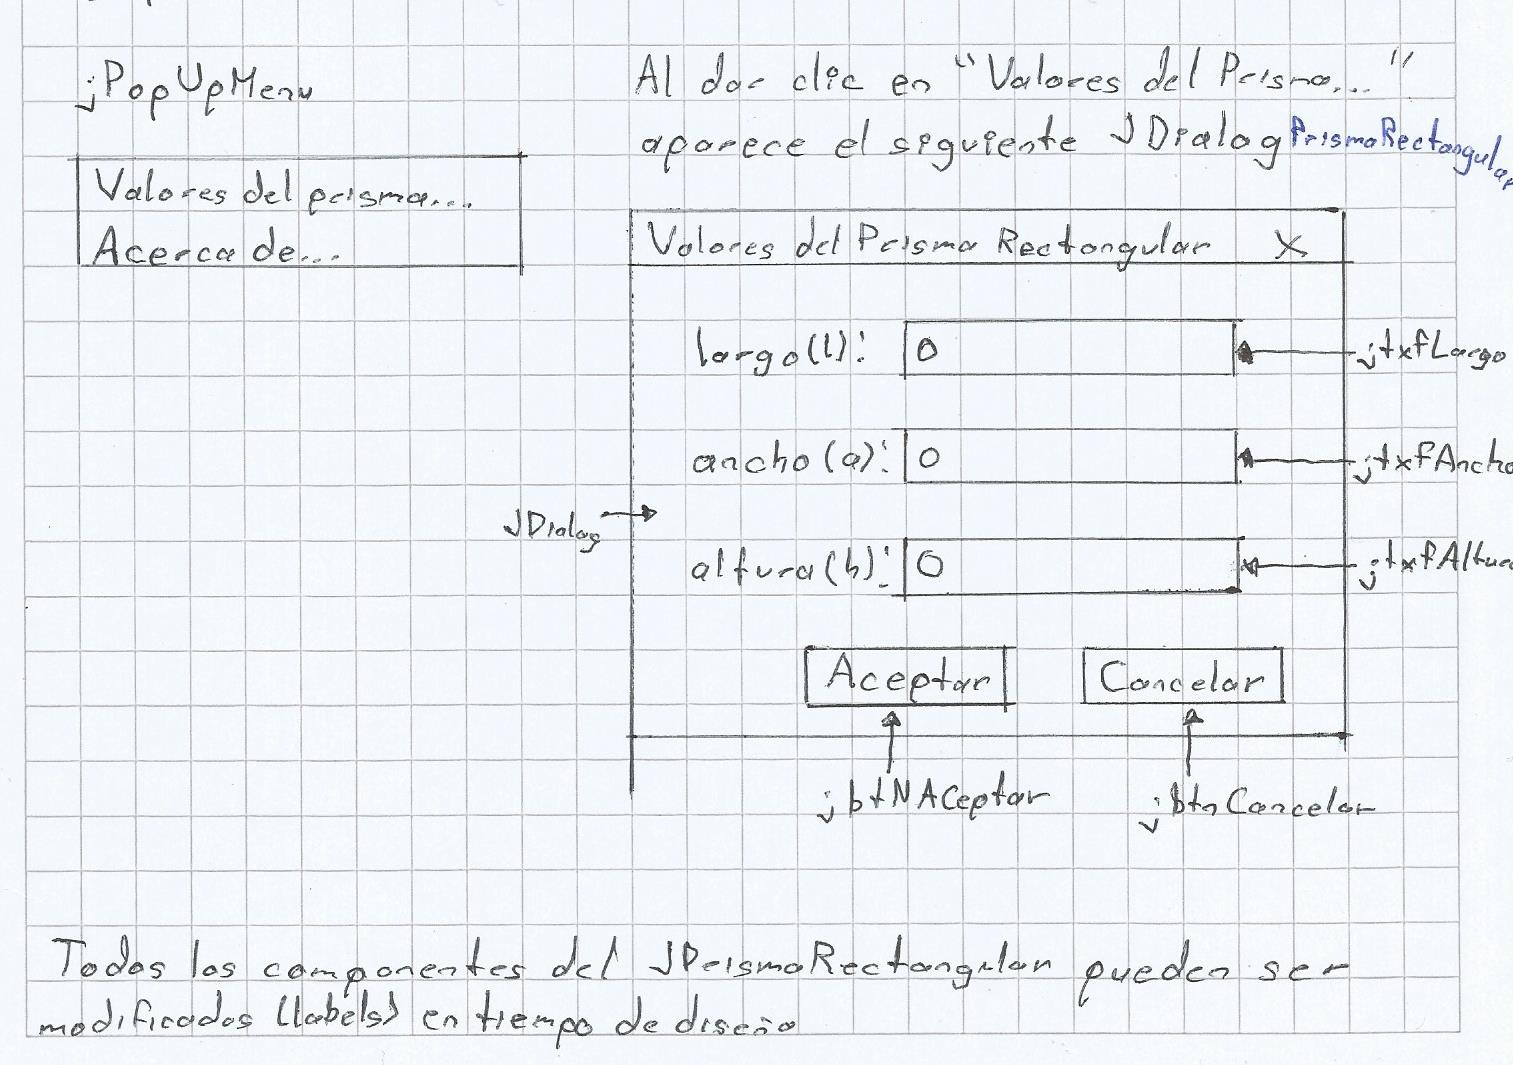 jPopUpMenu
Valores del prisma...
Acerca de...
Al dar clic en "Valores del Prisma..."
aparece el siguiente JDialogPrismaRectangular
Valores del Prisma Rectangular X
largo(l): 0 jtxfLargo
ancho(a): 0 jtxfAncho
JDialog
altura(h): 0 jtxfAltura
Aceptar Cancelar
jbtNACeptar jbtnCancelar
Todos los componentes del JPrismaRectangular pueden ser
modificados (labels) en tiempo de diseño